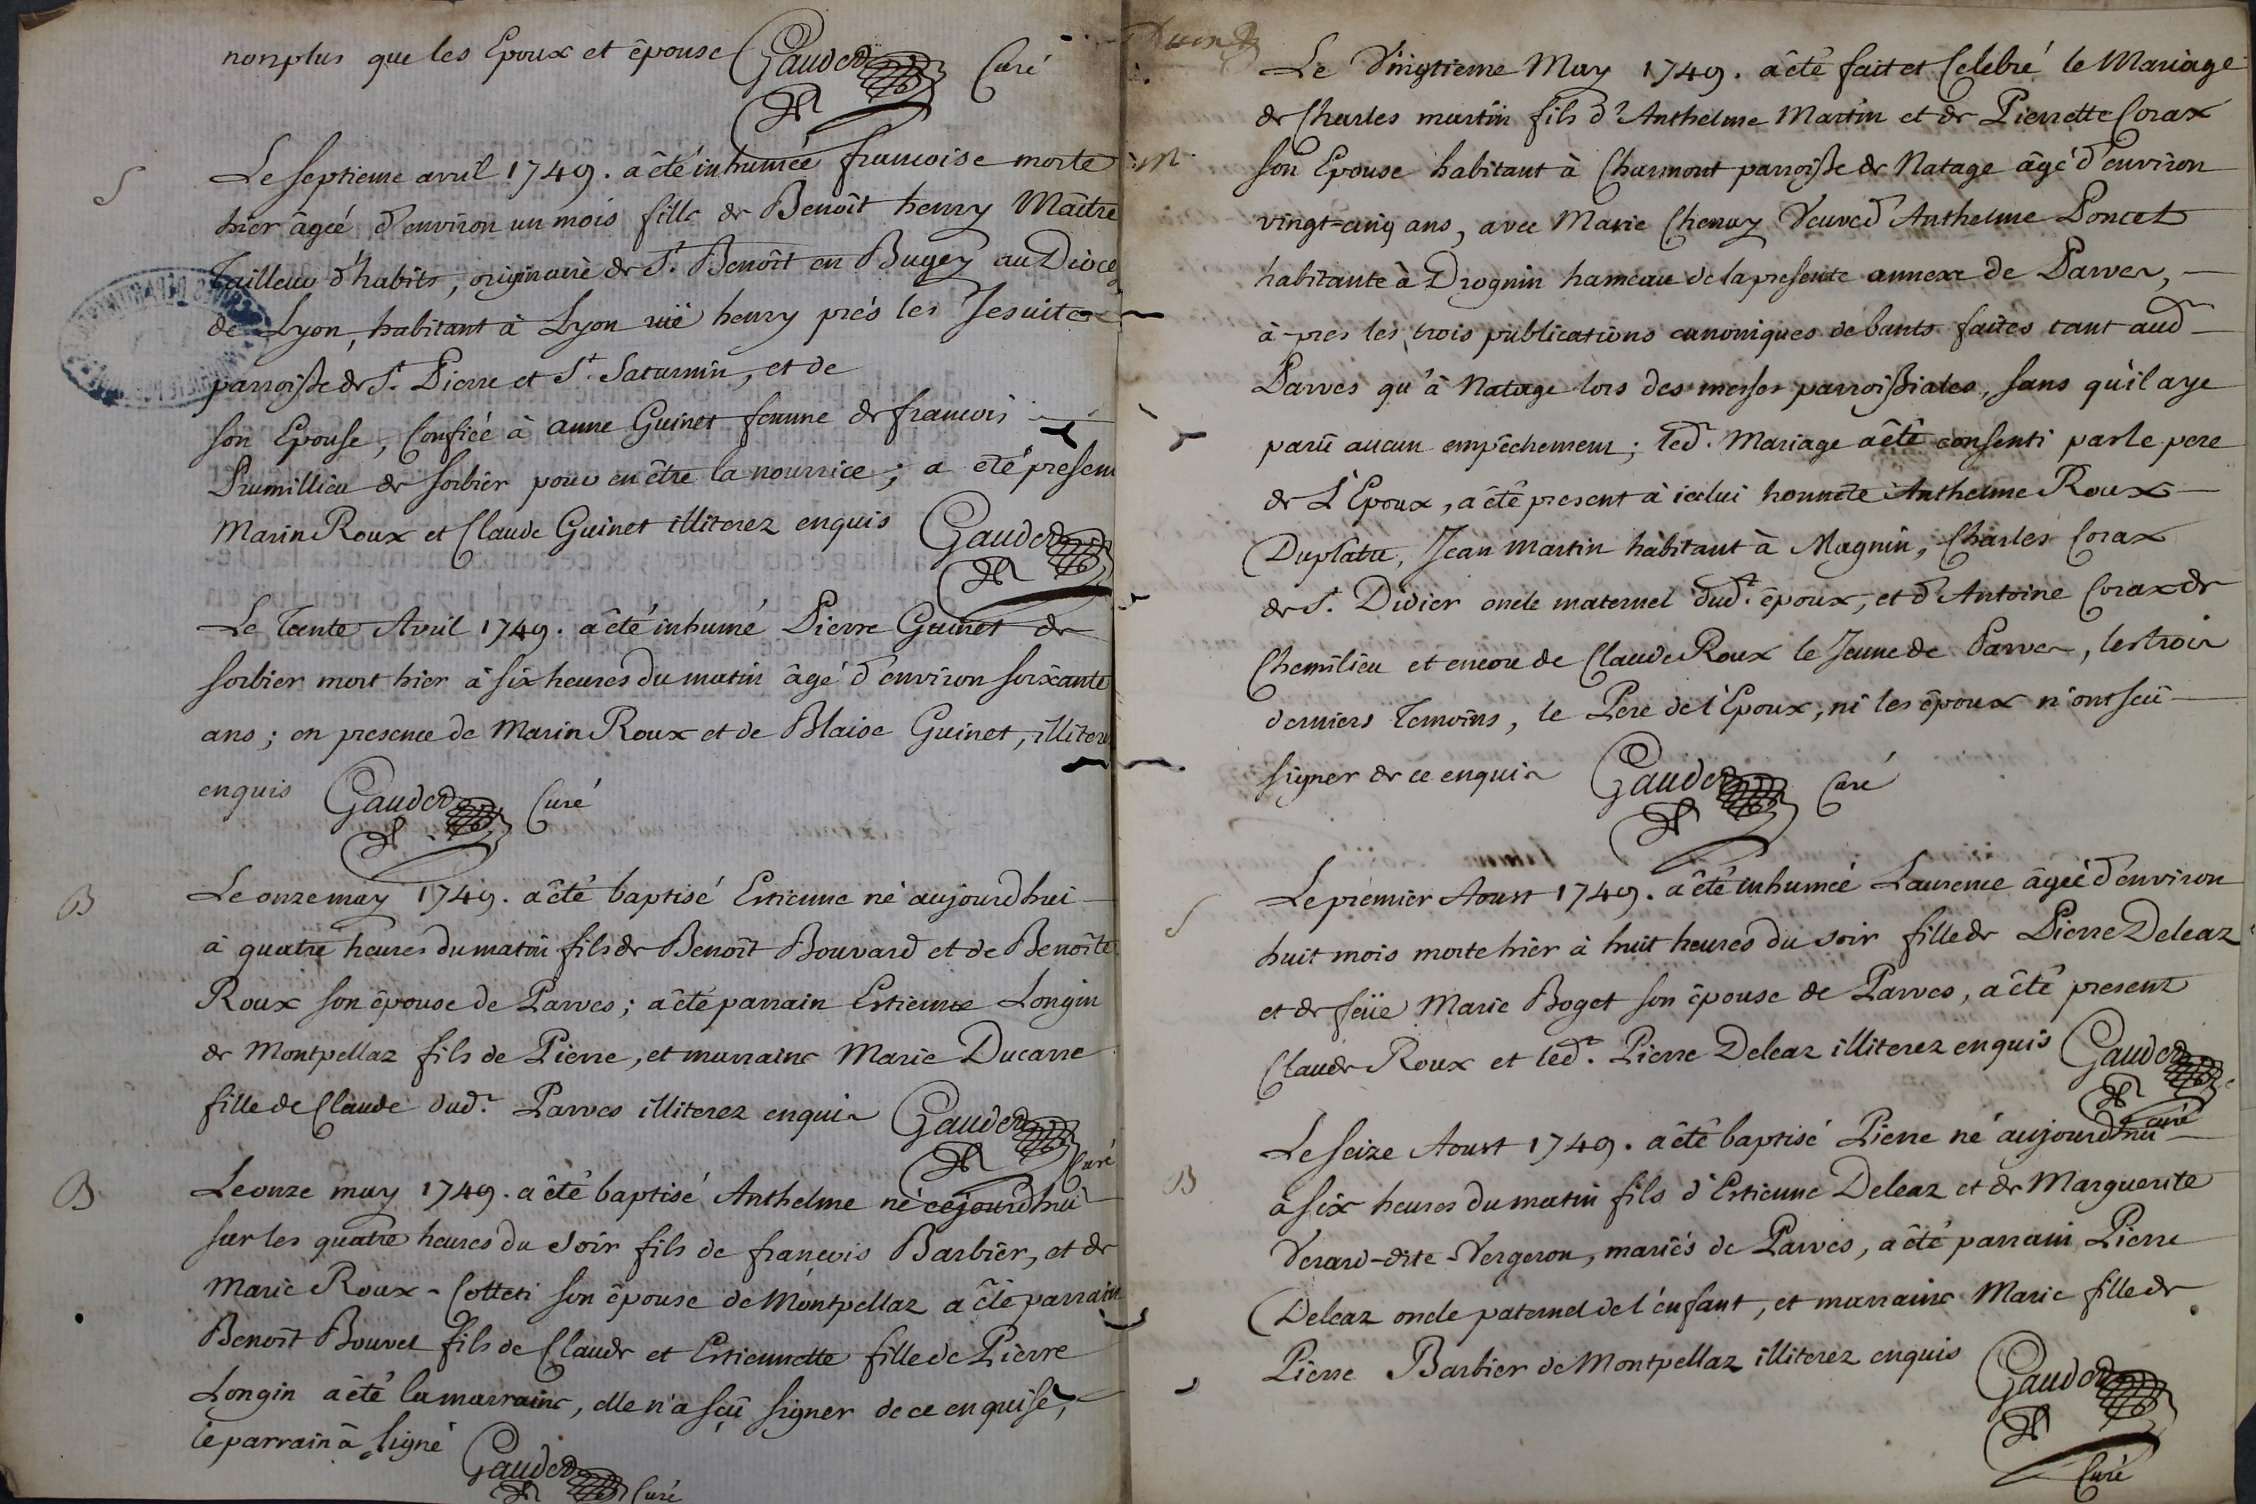 nonplus que les Epoux et êpouse Gauder Curé
S
Le septieme avril 1749. a êté inhumée francoise morte
hier âgeé d'environ un mois fille de Benoît henry Maître
Tailleur d'habits, originaire de St. Benoît en Bugey au Dioce
de Lyon, habitant à Lyon rüe henry prés les Jesuites
parroisse de St. Pierre et St. Saturnin, et de
son Epouse, Confiée à anne Guinet femme de francois
Prumillieu de sorbier pour en être la nourrice; a eté present
Marin Roux et Claude Guinet illiterez enquis Gauder
Le Tante Avril 1749. a êté inhumé Pierre Guinet de
sorbier mort hier à six heures du matin âgé d'environ soixante
ans; en presence de Marin Roux et de Blaise Guinet, illiterez
enquis Gauder Curé
B
Le onze may 1749. a êté baptisé Estienne né aujourdhui
à quatre heures du matin fils de Benoît Bouvard et de Benoîte
Roux son êpouse de Parves; a êté parrain Estienne Longin
de Montpellaz fils de Pierre, et marraine Marie Ducarre
fille de Claude dudt. Parves illiterez enquis Gauder
Curé
B
Le onze may 1749. a êté baptisé Anthelme né cejourdhui
sur les quatre heures du soir fils de francois Barbier, et de
Marie Roux-Cotteti son êpouse de Montpellaz a êté parrain
Benoît Bouvet fils de Claude et Estiennette fille de Pierre
Longin a êté la marraine, elle n'a sçû signer de ce enquise,
le parrain â signé Gauder Curé
Le Vingtieme May 1749. a êté fait et Celebré le Mariage
de Charles martin fils d'Anthelme Martin et de Pierrette Corax
M
son Epouse habitant à Charmont parroisse de Natage âgé d'environ
vingt=cinq ans, avec Marie Chenuy Veuve d'Anthelme Poncet
habitante à Drognin hameau de la presente annexe de Parves,
à-pres les trois publications canoniques de bants faites tant audt
Parves qu'à Natage lors des messes parroissiales, sans qu'il aye
parû aucun empêchement; ledt. Mariage a êté consenti par le pere
de L'Epoux, a êté present à icelui honnête Anthelme Roux
Duplâtre, Jean Martin habitant à Magnin, Charles Corax
de St. Didier oncle maternel dudt. êpoux, et d'Antoine Corax de
Chemilieu et encore de Claude Roux le Jeune de Parves, les trois
derniers Temoins, le Pere de l'Epoux, ni les êpoux n'ont sçû
signer de ce enquis Gauder Curé
S
Le premier Aoust 1749. a êté inhumeé Laurence âgeé d'environ
huit mois morte hier à huit heures du soir fille de Pierre Deleaz
et de feüe Marie Boget son êpouse de Parves, a êté present
Claude Roux et ledt. Pierre Deleaz illiterez enquis Gauder
curé
Le seize Aoust 1749. a êté baptisé Pierre né aujourdhui
B
à six heures du matin fils d'Estienne Deleaz et de Marguerite
Verard-dite-Vergeron, mariés de Parves, a êté parrain Pierre
Deleaz oncle paternel de l'enfant, et marraine Marie fille de
Pierre Barbier de Montpellaz illiterez enquis Gauder
Curé